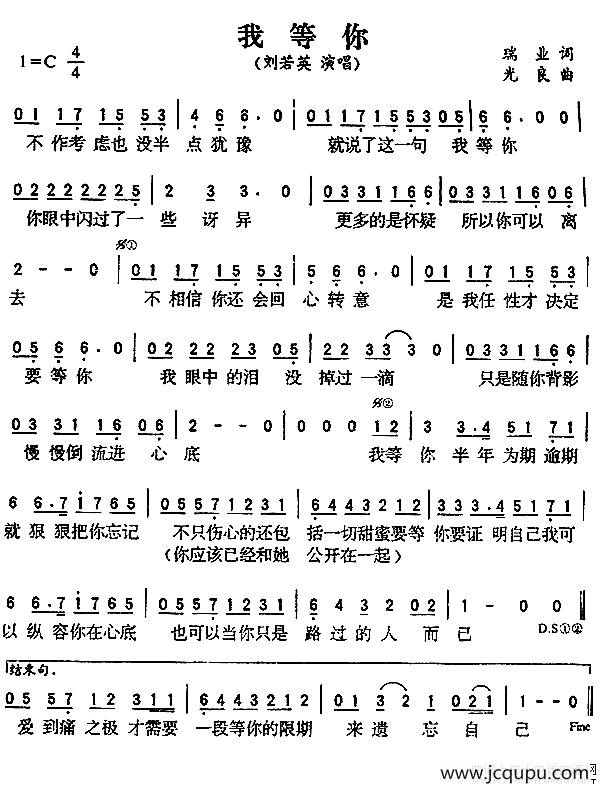 我等你
(刘若英 演唱)
1=C 4/4
瑞业 词
光良 曲
0 1 1 7 1 5 5 3 | 4 6 6. 0 | 0 1 1 7 1 5 5 3 0 5 | 6. 0 0 |
不作考虑也没半点犹豫 就说了这一句 我等你
0 2 2 2 2 2 2 5 | 2 3 3. 0 | 0 3 3 1 1 6 6 | 0 3 3 1 1 6 0 6 |
你眼中闪过了一些讶异 更多的是怀疑 所以你可以离
2 - - 0 | 0 1 1 7 1 5 5 3 | 5 6 6. 0 | 0 1 1 7 1 5 5 3 |
去 不相信你还会回心转意 是我任性才决定
0 5 6 6. 0 | 0 2 2 2 2 3 0 2 | 2 2 3 3 3 0 | 0 3 3 1 1 6 6 |
要等你 我眼中的泪 没掉过一滴 只是随你背影
0 3 3 1 1 6 0 6 | 2 - - 0 | 0 0 0 1 2 | 3 3. 4 5 1 7 1 |
慢慢倒流进心底 我等你半年为期逾期
6 6. 7 1 7 6 5 | 0 5 5 7 1 2 3 1 | 6 4 4 3 2 1 2 | 3 3 3. 4 5 1 7 1 |
就狠狠把你忘记 不只伤心的还包括一切甜蜜要等你要证明自己我可
(你应该已经和她 公开在一起)
6 6. 7 1 7 6 5 | 0 5 5 7 1 2 3 1 | 6 4 3 2 0 2 | 1 - 0 0 ‖
以纵容你在心底 也可以当你只是路过的人而已 D.S①②
结束句.
0 5 5 7 1 2 3 1 | 6 4 4 3 2 1 2 | 0 1 3 2 1 0 2 1 | 1 - - 0 ‖
爱到痛之极才需要一段等你的限期 来遗忘自己 Fine
www.jcqupu.com